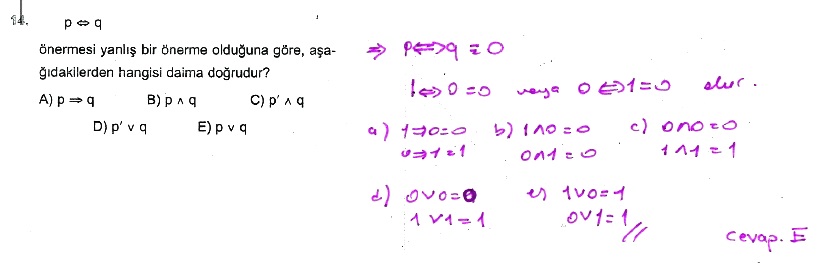 14. p ⇔ q
önermesi yanlış bir önerme olduğuna göre, aşa-
ğıdakilerden hangisi daima doğrudur?
A) p ⇒ q B) p ∧ q C) p′ ∧ q
D) p′ ∨ q E) p ∨ q
⇒ p⇔q ≡ 0
1⇔0 = 0 veya 0⇔1=0 olur.
a) 1⇒0=0 b) 1∧0=0 c) 0∧0=0
0⇒1=1 0∧1=0 1∧1=1
d) 0∨0=0 e) 1∨0=1
1∨1=1 0∨1=1 //
Cevap. E